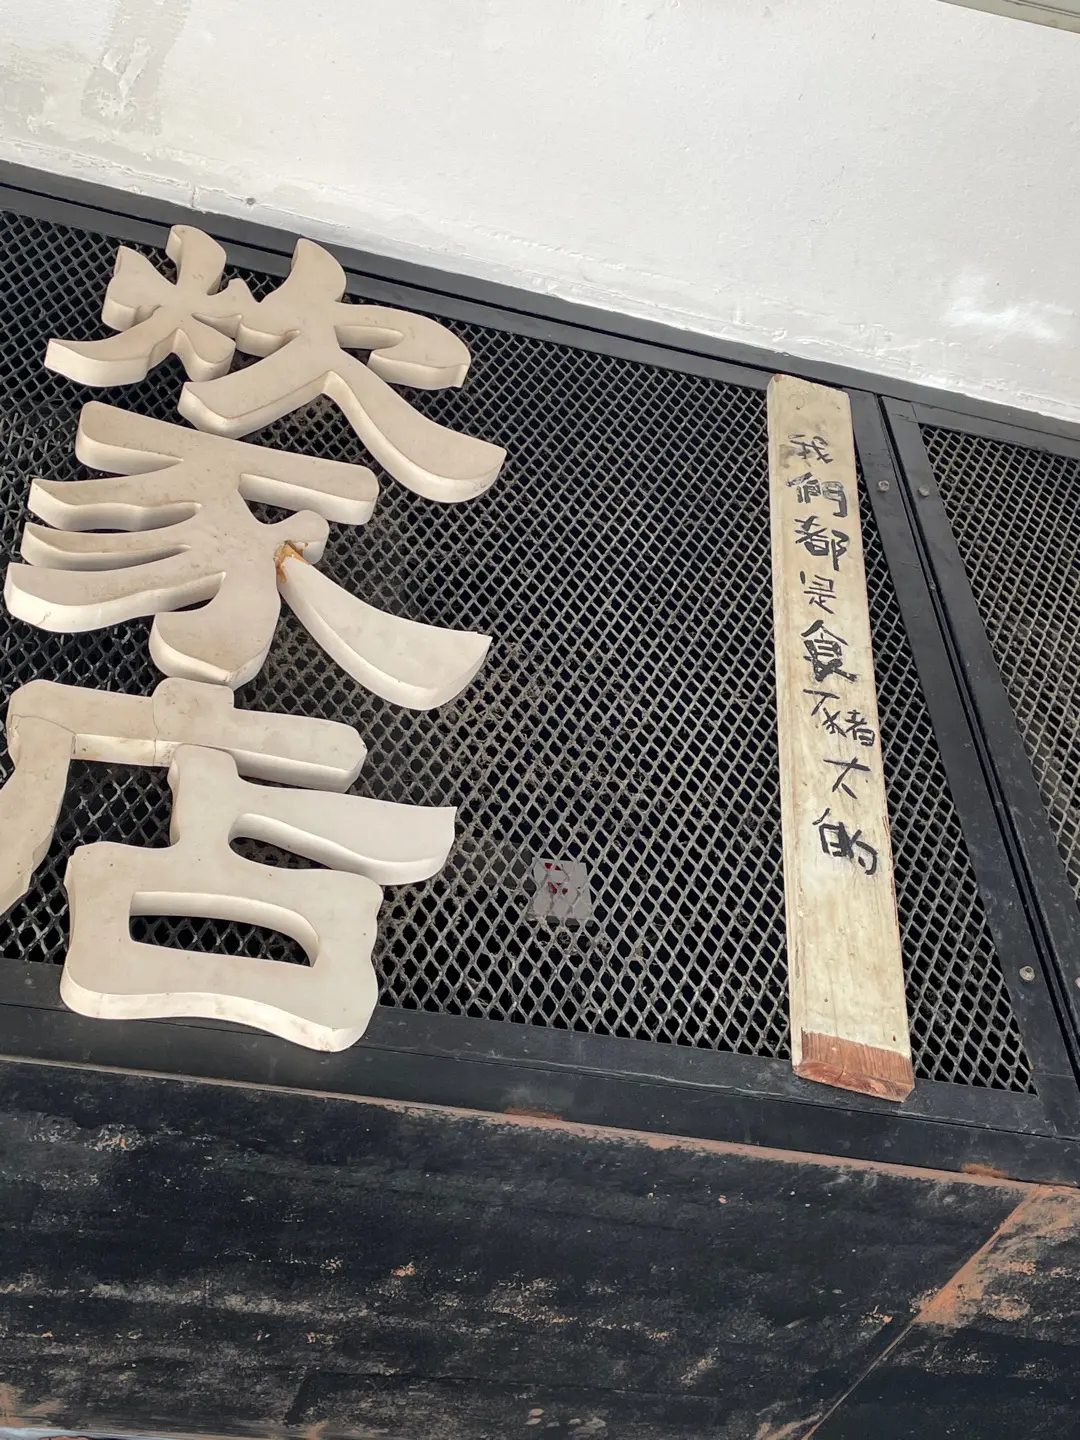 炊豕店
我們都是食豬大的